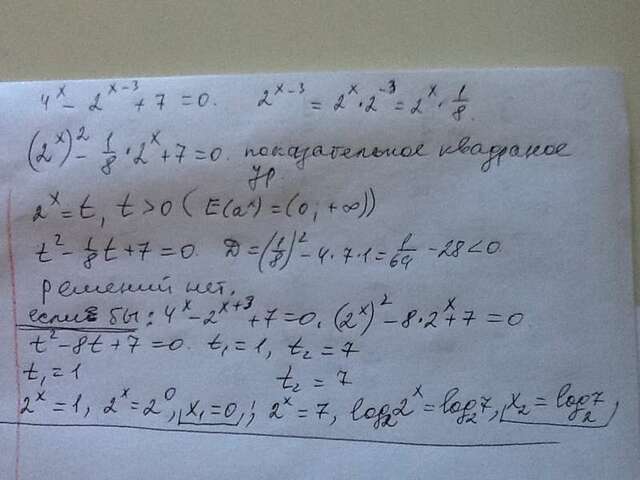 4^x − 2^(x−3) + 7 = 0. 2^(x−3) = 2^x · 2^(−3) = 2^x · 1/8.
(2^x)^2 − 1/8 · 2^x + 7 = 0. показательное квадратное
ур.
2^x = t, t > 0 (E(a^x) = (0; +∞))
t^2 − 1/8 t + 7 = 0 D = (1/8)^2 − 4·7·1 = 1/64 − 28 < 0
решений нет.
если бы: 4^x − 2^(x+3) + 7 = 0, (2^x)^2 − 8·2^x + 7 = 0
t^2 − 8t + 7 = 0. t₁ = 1, t₂ = 7
t₁ = 1 t₂ = 7
2^x = 1, 2^x = 2^0, x₁ = 0; 2^x = 7, log₂2^x = log₂7, x₂ = log₂7